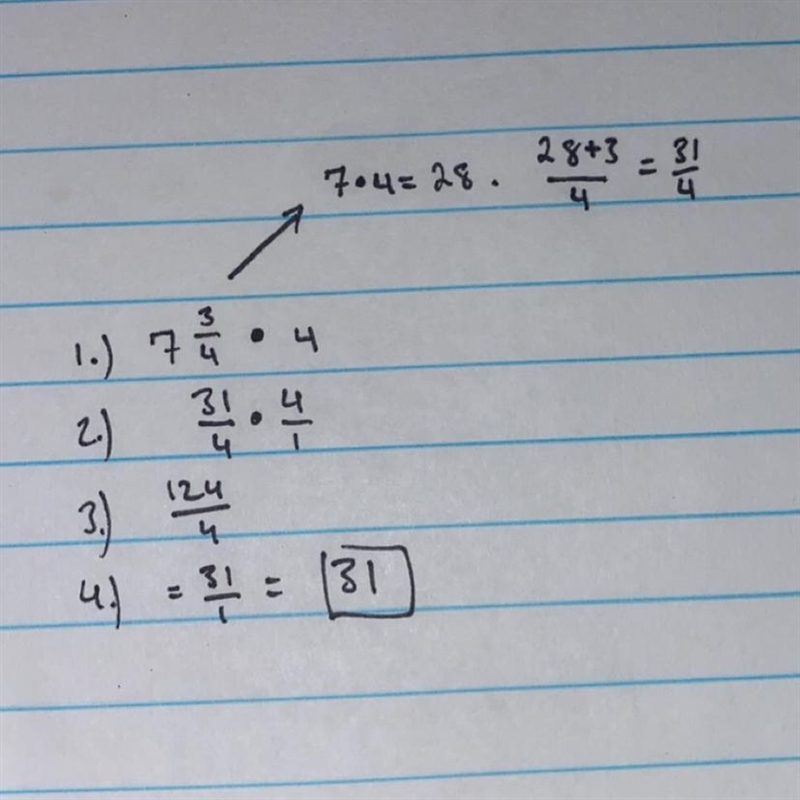 7•4=28. 28+3/4 = 31/4
1.) 7 3/4 • 4
2.) 31/4 • 4/1
3.) 124/4
4.) = 31/1 = 31